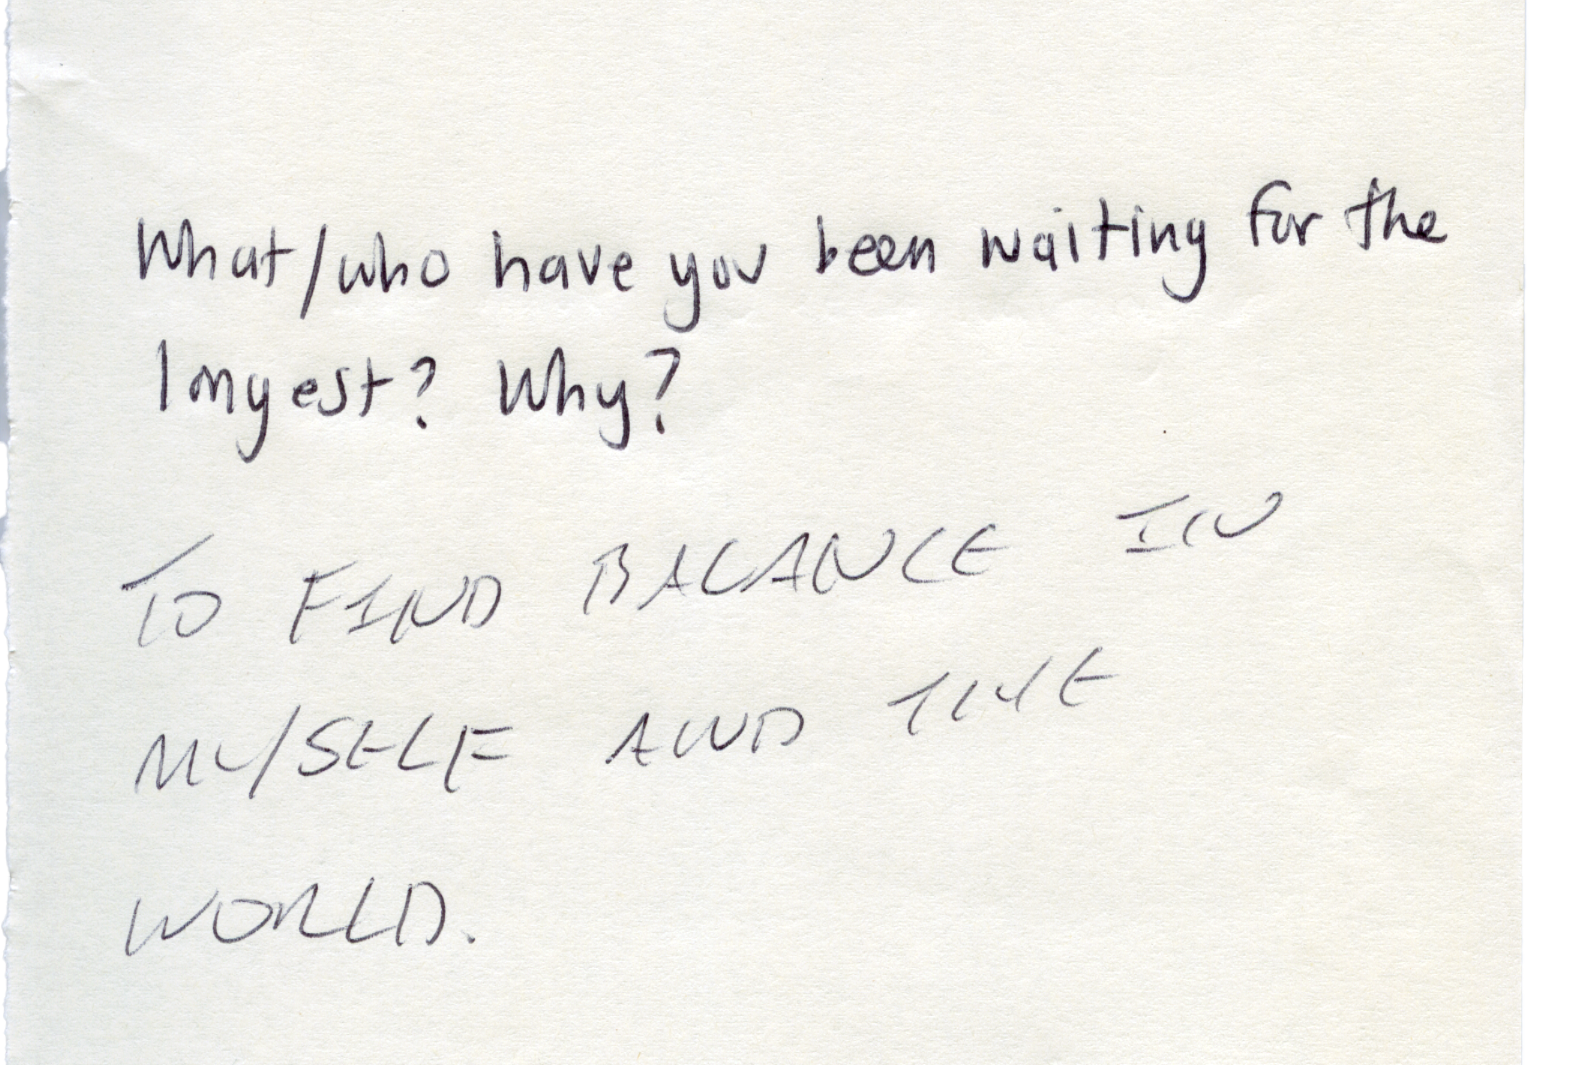 What/who have you been waiting for the
longest? Why?
TO FIND BALANCE IN
MYSELF AND THE
WORLD.